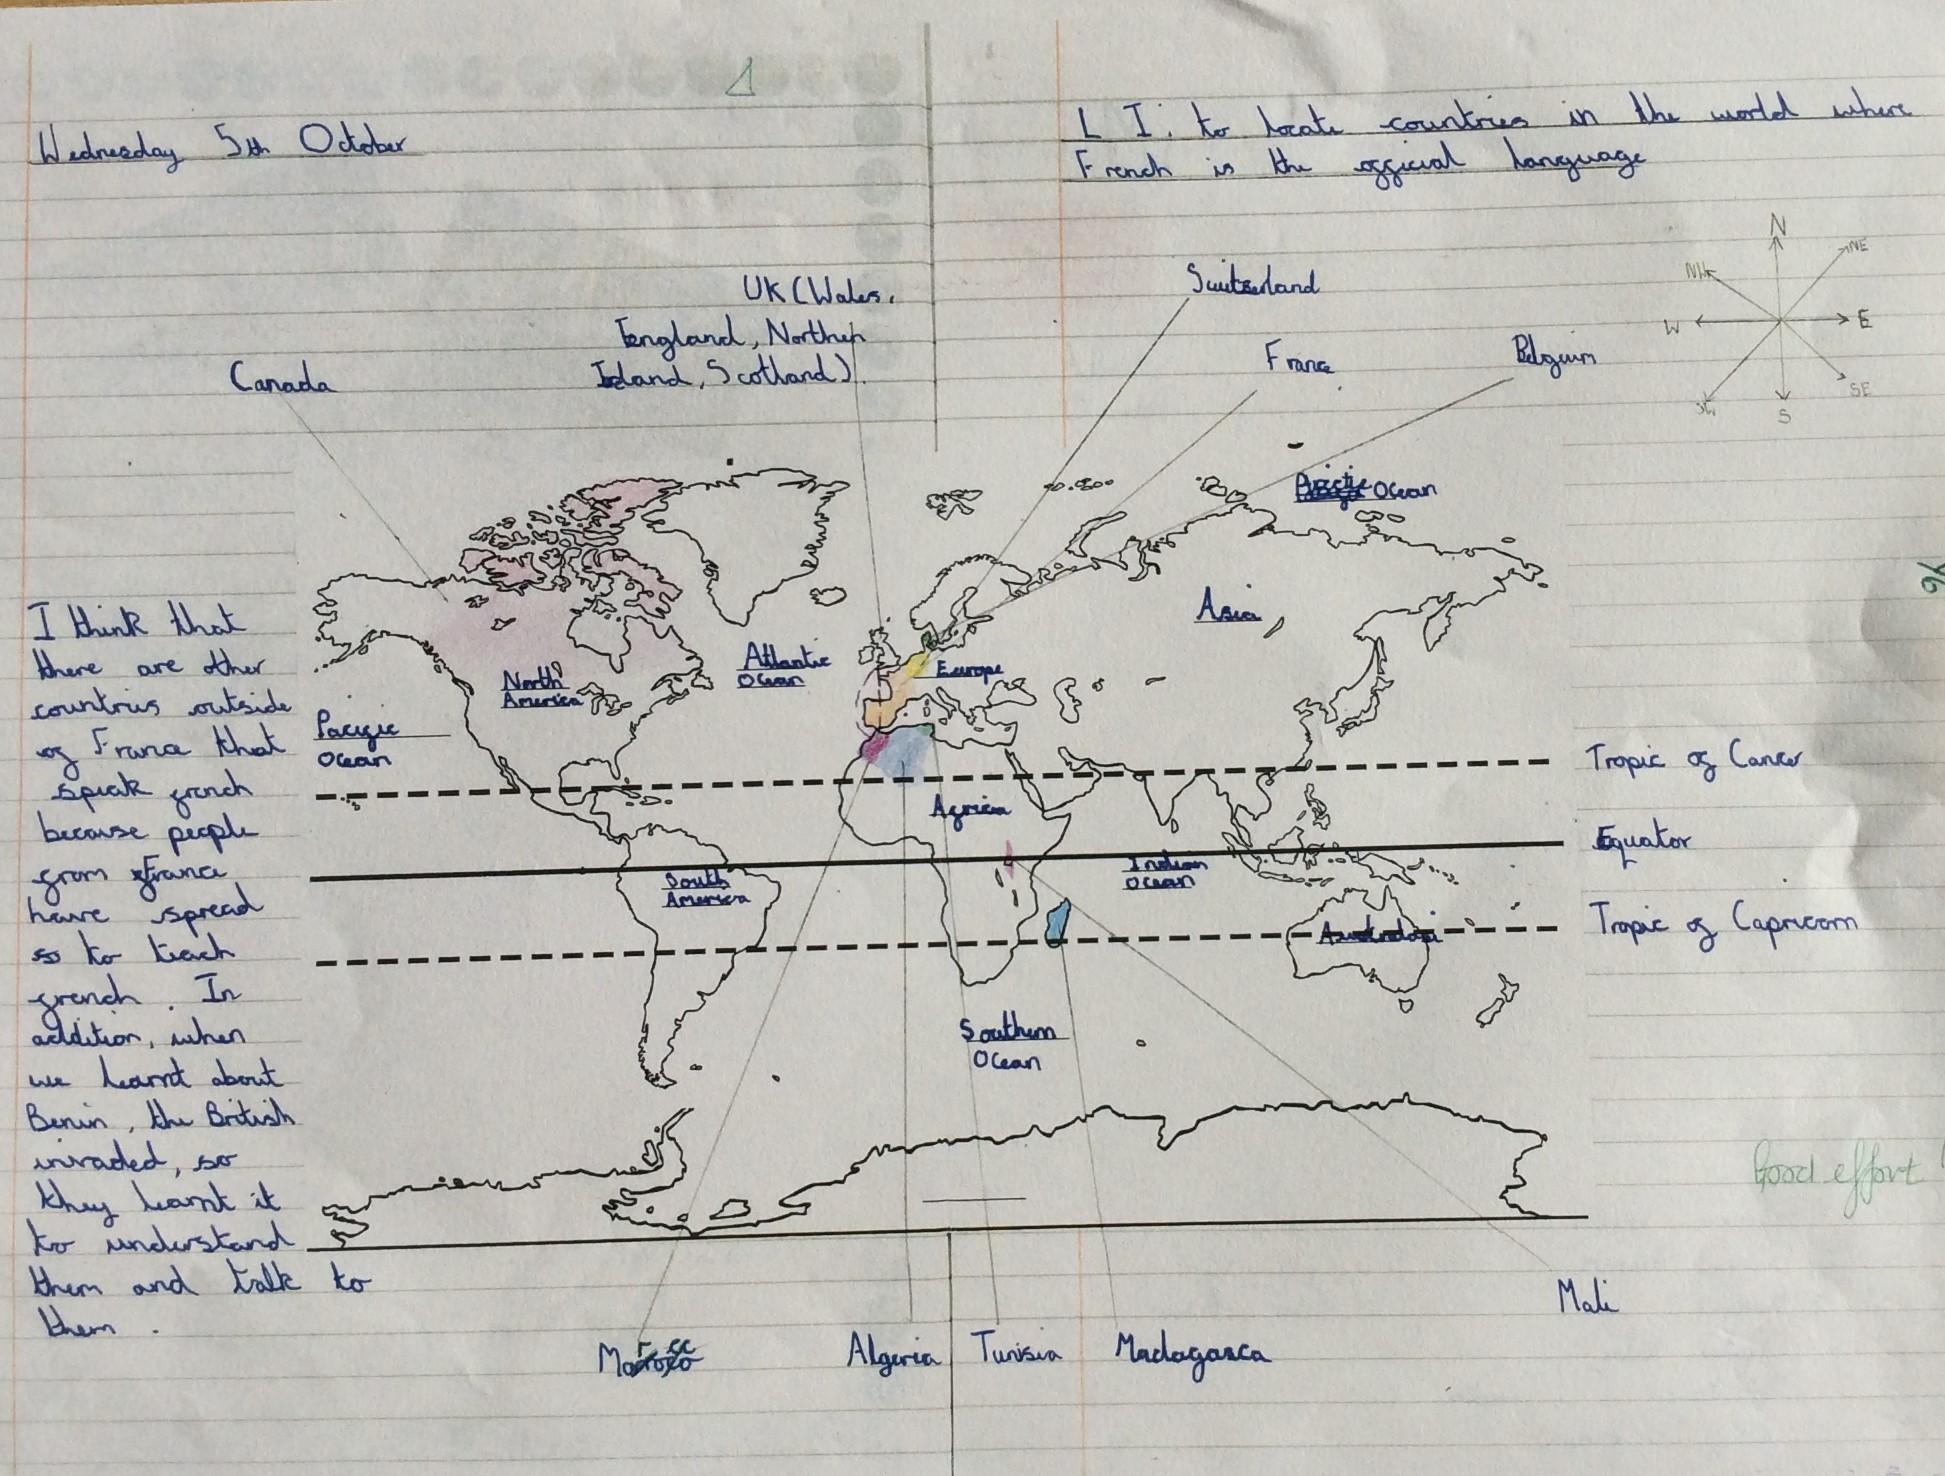 Wednesday 5th October
L I. to locate countries in the world where
French is the official language
N
NE
E
SE
S
SW
W
NW
UK (Wales,
England, Northen
Island, Scotland).
Canada
Switzerland
France
Belguim
Arctic Ocean
Asia
Atlantic
Ocean
Europe
North
America
Pacific
Ocean
Tropic of Cancer
Africa
Equator
Indian
Ocean
South
America
Tropic of Capricorn
Southern
Ocean
I think that
there are other
countries outside
of France that
speak french
because people
from France
have spread
so to teach
french. In
addition, when
we learnt about
Benin, the British
invaded, so
they learnt it
to understand
them and talk to
them.
Good effort!
Mali
Algeria
Tunisia
Madagasca